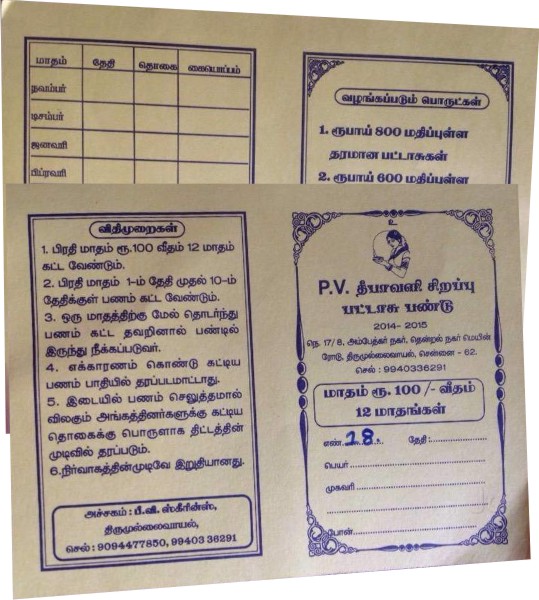 மாதம் தேதி தொகை கையொப்பம்
நவம்பர்
டிசம்பர்
ஜனவரி
பிப்ரவரி
வழங்கப்படும் பொருட்கள்
1. ரூபாய் 800 மதிப்புள்ள
தரமான பட்டாசுகள்
2. ரூபாய் 600 மதிப்புள்ள
விதிமுறைகள்
1. பிரதி மாதம் ரூ.100 வீதம் 12 மாதம்
கட்ட வேண்டும்.
2. பிரதி மாதம் 1-ம் தேதி முதல் 10-ம்
தேதிக்குள் பணம் கட்ட வேண்டும்.
3. ஒரு மாதத்திற்கு மேல் தொடர்ந்து
பணம் கட்ட தவறினால் பண்டில்
இருந்து நீக்கப்படுவர்.
4. எக்காரணம் கொண்டு கட்டிய
பணம் பாதியில் தரப்படமாட்டாது.
5. இடையில் பணம் செலுத்தமால்
விலகும் அங்கத்தினர்களுக்கு கட்டிய
தொகைக்கு பொருளாக திட்டத்தின்
முடிவில் தரப்படும்.
6.நிர்வாகத்தின்முடிவே இறுதியானது.
அச்சகம் : பீ.வி. ஸ்கிரீன்ஸ்,
திருமுல்லைவாயல்,
செல் : 9094477850, 99403 36291
உ
P.V. தீபாவளி சிறப்பு
பட்டாசு பண்டு
2014- 2015
நெ. 17/ 8, அம்பேத்கர் நகர், தென்றல் நகர் மெயின்
ரோடு, திருமுல்லைவாயல், சென்னை - 62.
செல் : 9940336291
மாதம் ரூ. 100 /- வீதம்
12 மாதங்கள்
எண். 28 தேதி :
பெயர்
முகவரி
போன்